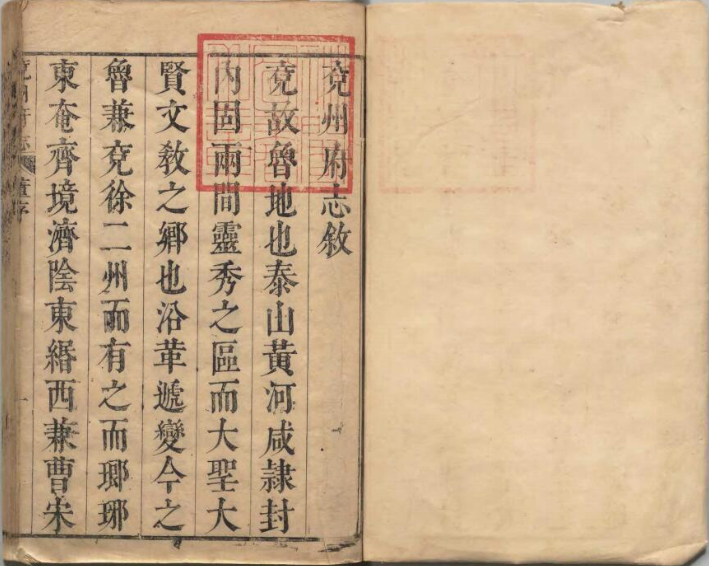 兗州府志敘
兗故魯地也泰山黃河咸隷封
內固兩間靈秀之區而大聖大
賢文敎之鄉也沿革遞變今之
魯兼兗徐二州而有之而瑯琊
東奄齊境濟陰東緡西兼曹宋